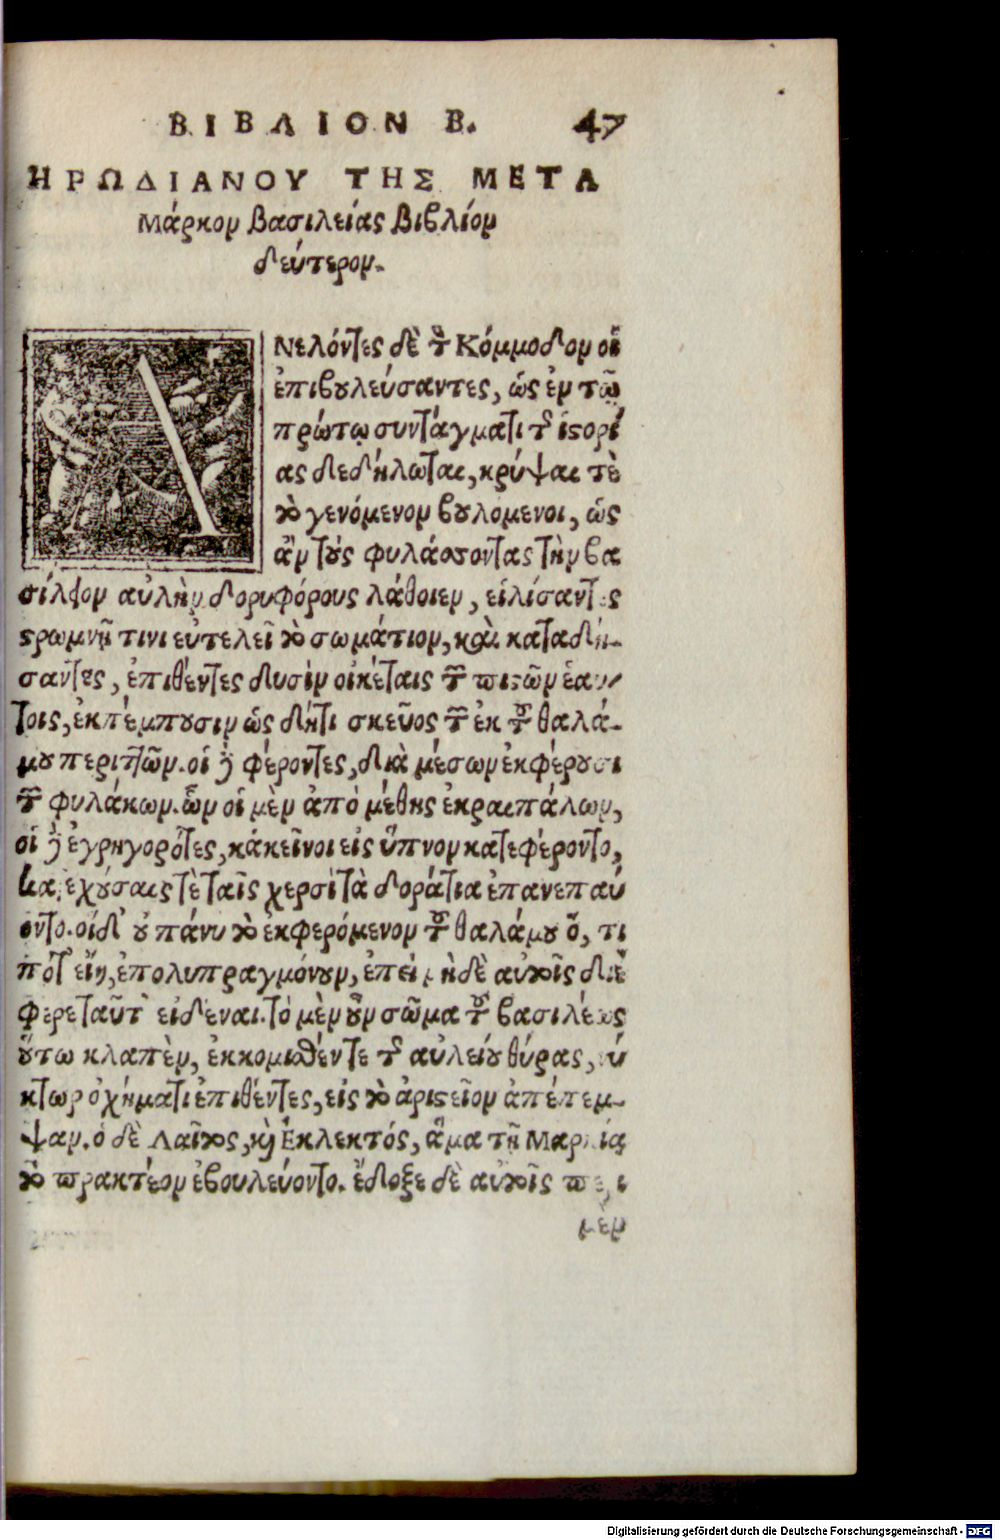 ΒΙΒΛΙΟΝ Β. 47
ΗΡΩΔΙΑΝΟΥ ΤΗΣ ΜΕΤΑ
Μάρκον βασιλείας βιβλίον
δεύτερον.
ΑΝελόντες δὲ τὸν Κόμμοδον οἱ
ἐπιβουλεύσαντες, ὡς ἐν τῷ
πρώτῳ συντάγματι τῆς ἱστορί
ας δεδήλωται, κρύψαι τὲ
τὸ γενόμενον βουλόμενοι, ὡς
ἂν τοὺς φυλάσσοντας τὴν βα
σίλειον αὐλὴν δορυφόρους λάθοιεν, εἱλίσαντες
στρωμνῇ τινι εὐτελεῖ τὸ σωμάτιον, καὶ καταδή-
σαντες, ἐπιθέντες δυσὶν οἰκέταις τῶν πιστῶν ἑαυ
τοις, ἐκπέμπουσιν ὡς δήτι σκεῦος τῶν ἐκ τοῦ θαλά-
μου περιττῶν. οἱ δὲ φέροντες, διὰ μέσων ἐκφέρουσι
τῶν φυλάκων. ὧν οἱ μὲν ἀπὸ μέθης ἐκραιπάλων,
οἱ δὲ ἐγρηγορότες, κἀκεῖνοι εἰς ὕπνον κατεφέροντο,
κατεχούσαις τὲ ταῖς χερσὶ τὰ δοράτια ἐπανεπαύ
οντο. οἱ δ' οὐ πάνυ τὸ ἐκφερόμενον τοῦ θαλάμου ὅ, τι
ποτ' εἴη, ἐπολυπραγμόνουν, ἐπεὶ μηδὲ αὐτοῖς διέ
φερε ταῦτ' εἰδεναι. τὸ μὲν οὖν σῶμα τοῦ βασιλέως
οὕτω κλαπὲν, ἐκκομισθέν τε τῆς αὐλείου θύρας, νύ
κτωρ ὀχήματι ἐπιθέντες, εἰς τὸ ἀριστεῖον ἀπέπεμ-
ψαν. ὁ δὲ Λαῖτος, καὶ Ἐκλεκτός, ἅμα τῇ Μαρκίᾳ
τὸ πρακτέον ἐβουλεύοντο. ἔδοξε δὲ αὐτοῖς περι
μεν
Digitalisierung gefördert durch die Deutsche Forschungsgemeinschaft - DFG